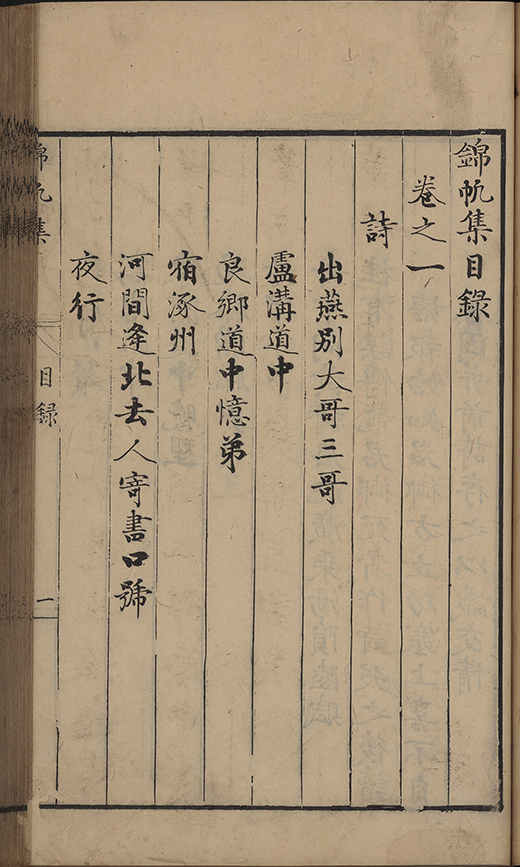 錦帆集目錄
卷之一
詩
出燕別大哥三哥
盧溝道中
良鄉道中憶弟
宿涿州
河間逢北去人寄書口號
夜行
錦帆集
目錄
一